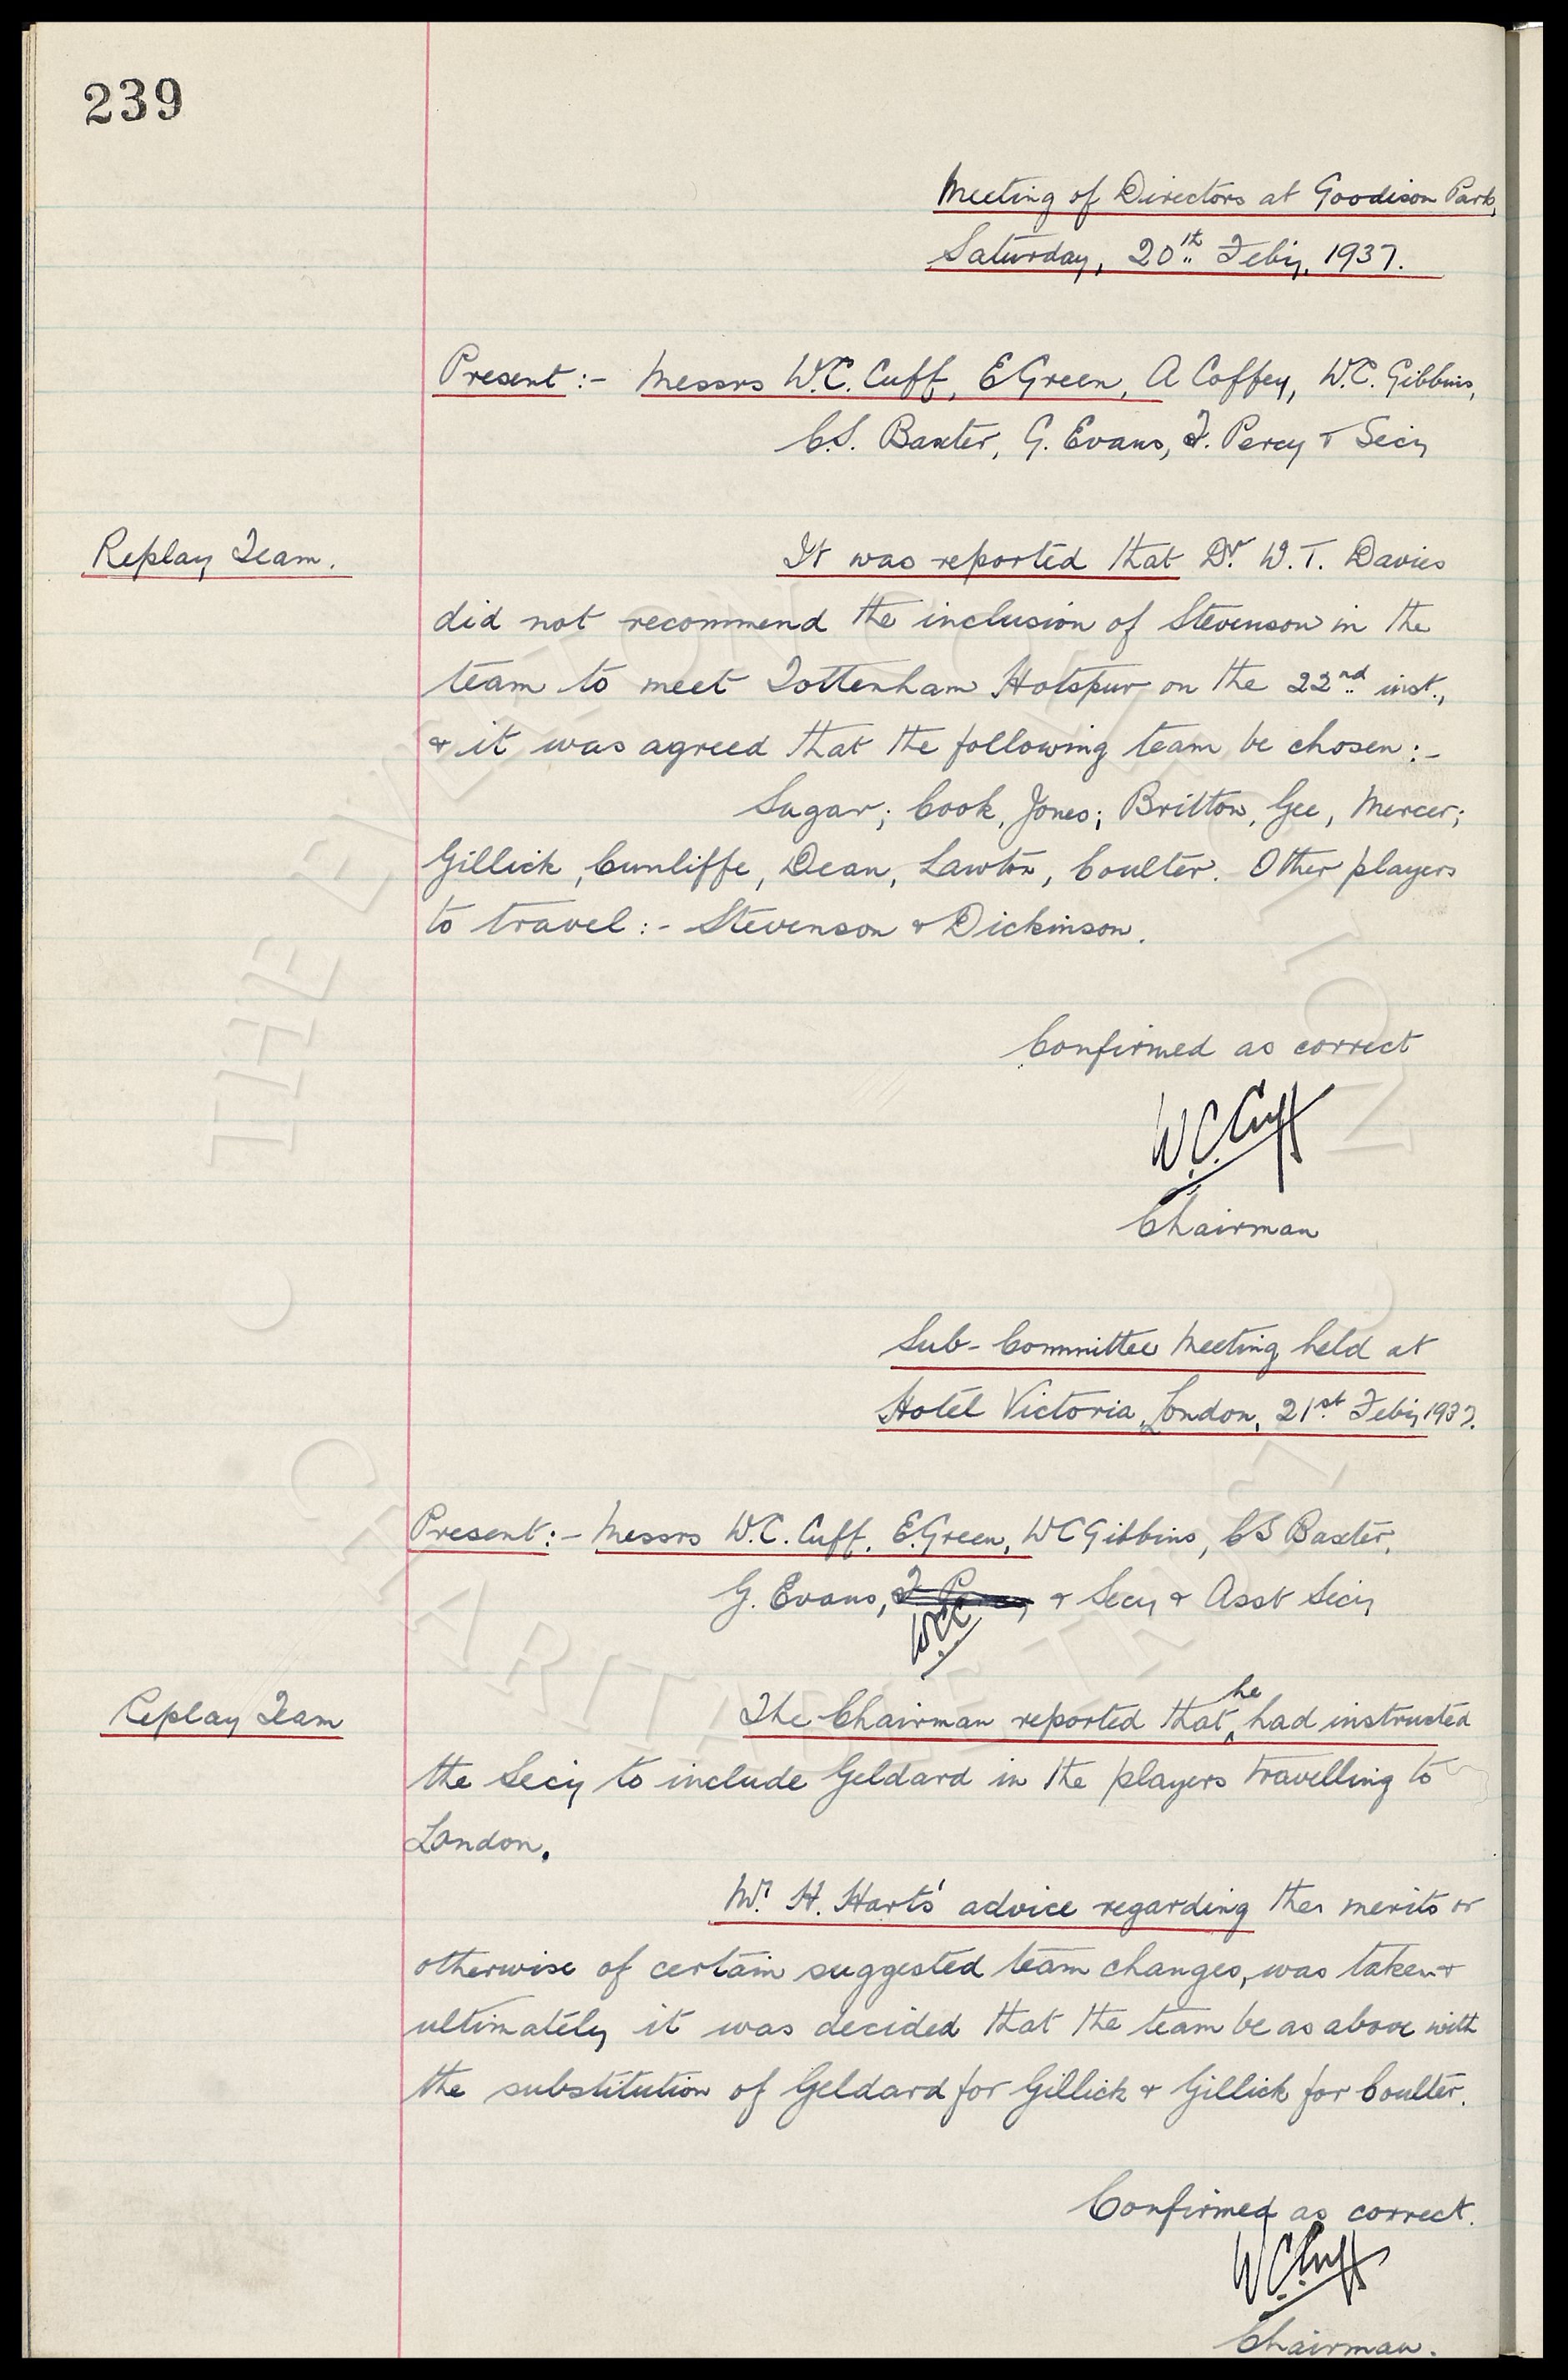 239
Meeting of Directors at Goodison Park,
Saturday, 20th Feby, 1937.
Present:- Messrs W.C. Cuff, E Green, A Coffey, W.C. Gibbins,
C.S. Baxter, G. Evans, F. Percy & Secy
Replay Team.
It was reported that Dr. W.T. Davies
did not recommend the inclusion of Stevenson in the
team to meet Tottenham Hotspur on the 22nd inst.,
& it was agreed that the following team be chosen:-
Sagar; Cook, Jones; Britton, Gee, Mercer;
Gillick, Cunliffe, Dean, Lawton, Coulter. Other players
to travel:- Stevenson & Dickinson.
Confirmed as correct
W.C. Cuff
Chairman
Sub-Committee Meeting held at
Hotel Victoria, London, 21st Feby 1937.
Present:- Messrs W.C. Cuff, E. Green, W C Gibbins, C S Baxter,
G. Evans, F. Percy & Secy & Asst Secy
WCC
Replay Team
The Chairman reported that he had instructed
the Secy to include Geldard in the players travelling to
London.
Mr. H. Harts' advice regarding the merits or
otherwise of certain suggested team changes, was taken &
ultimately it was decided that the team be as above with
the substitution of Geldard for Gillick & Gillick for Coulter.
Confirmed as correct.
W.C. Cuff
Chairman.
THE EVERTON COLLECTION
CHARITABLE TRUST